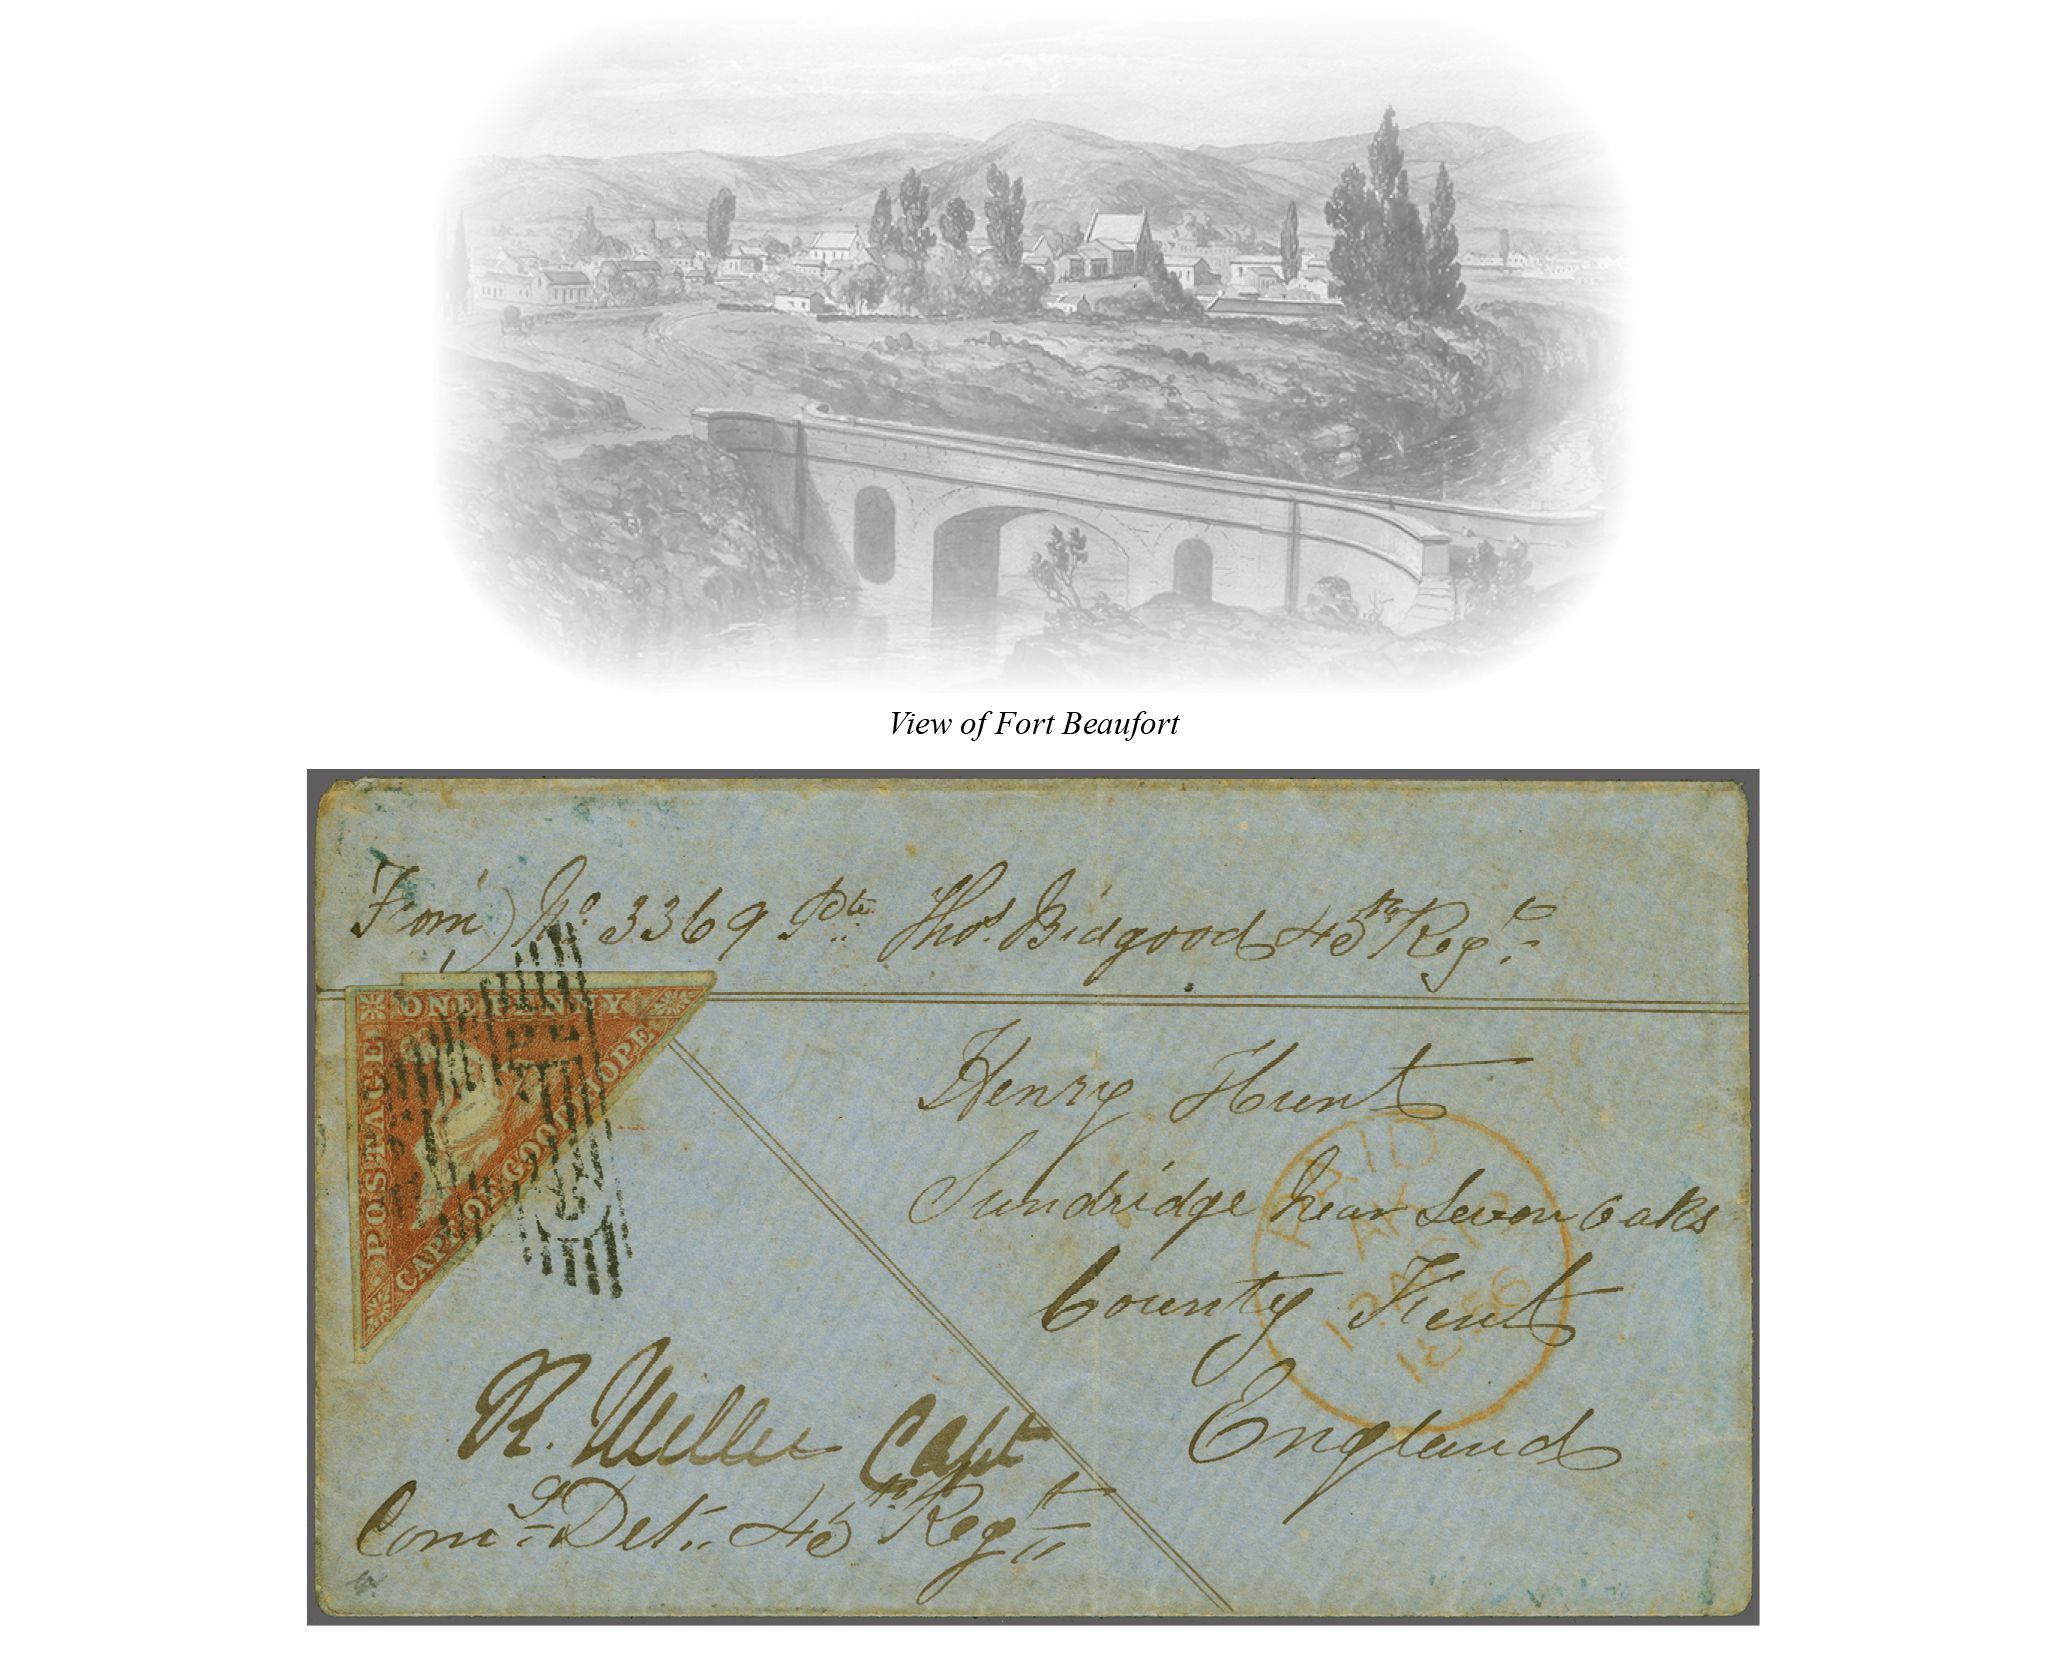 View of Fort Beaufort
From) No. 3369 Pte. Thos. Bidgood 45th Regt.
ONE PENNY
POSTAGE
CAPE OF GOOD HOPE
Henry Hunt
Sundridge Near Seven Oaks
County Kent
England
PAID
1856
R. Miller Capt
Comg Det. 45th Regt